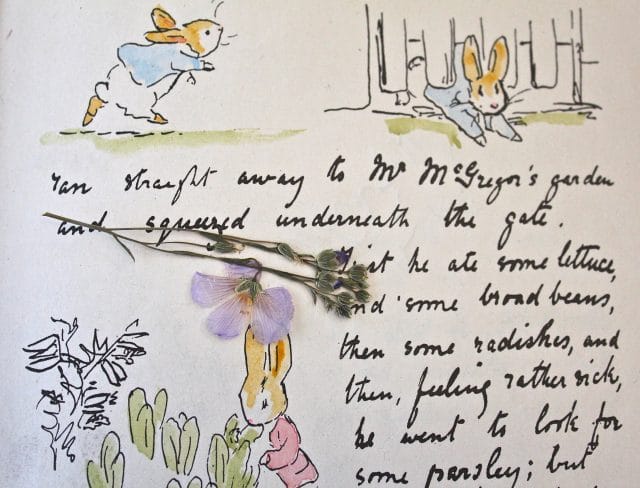 ran straight away to Mr McGregor's garden
and squeezed underneath the gate.
First he ate some lettuce,
and some broad beans,
then some radishes, and
then, feeling rather sick,
he went to look for
some parsley; but